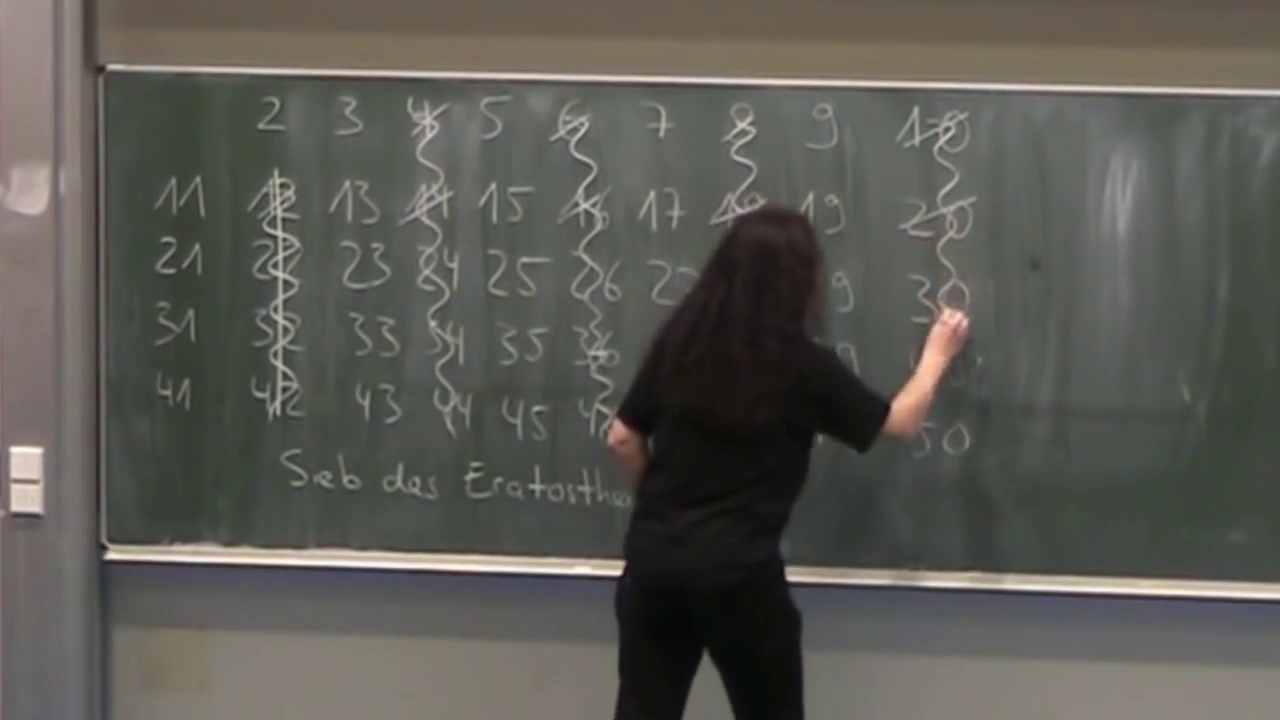 2 3 4 5 6 7 8 9 10
11 12 13 14 15 16 17 18 19 20
21 22 23 24 25 26 27 9 30
31 32 33 34 35 36 9
41 42 43 44 45 50
Sieb des